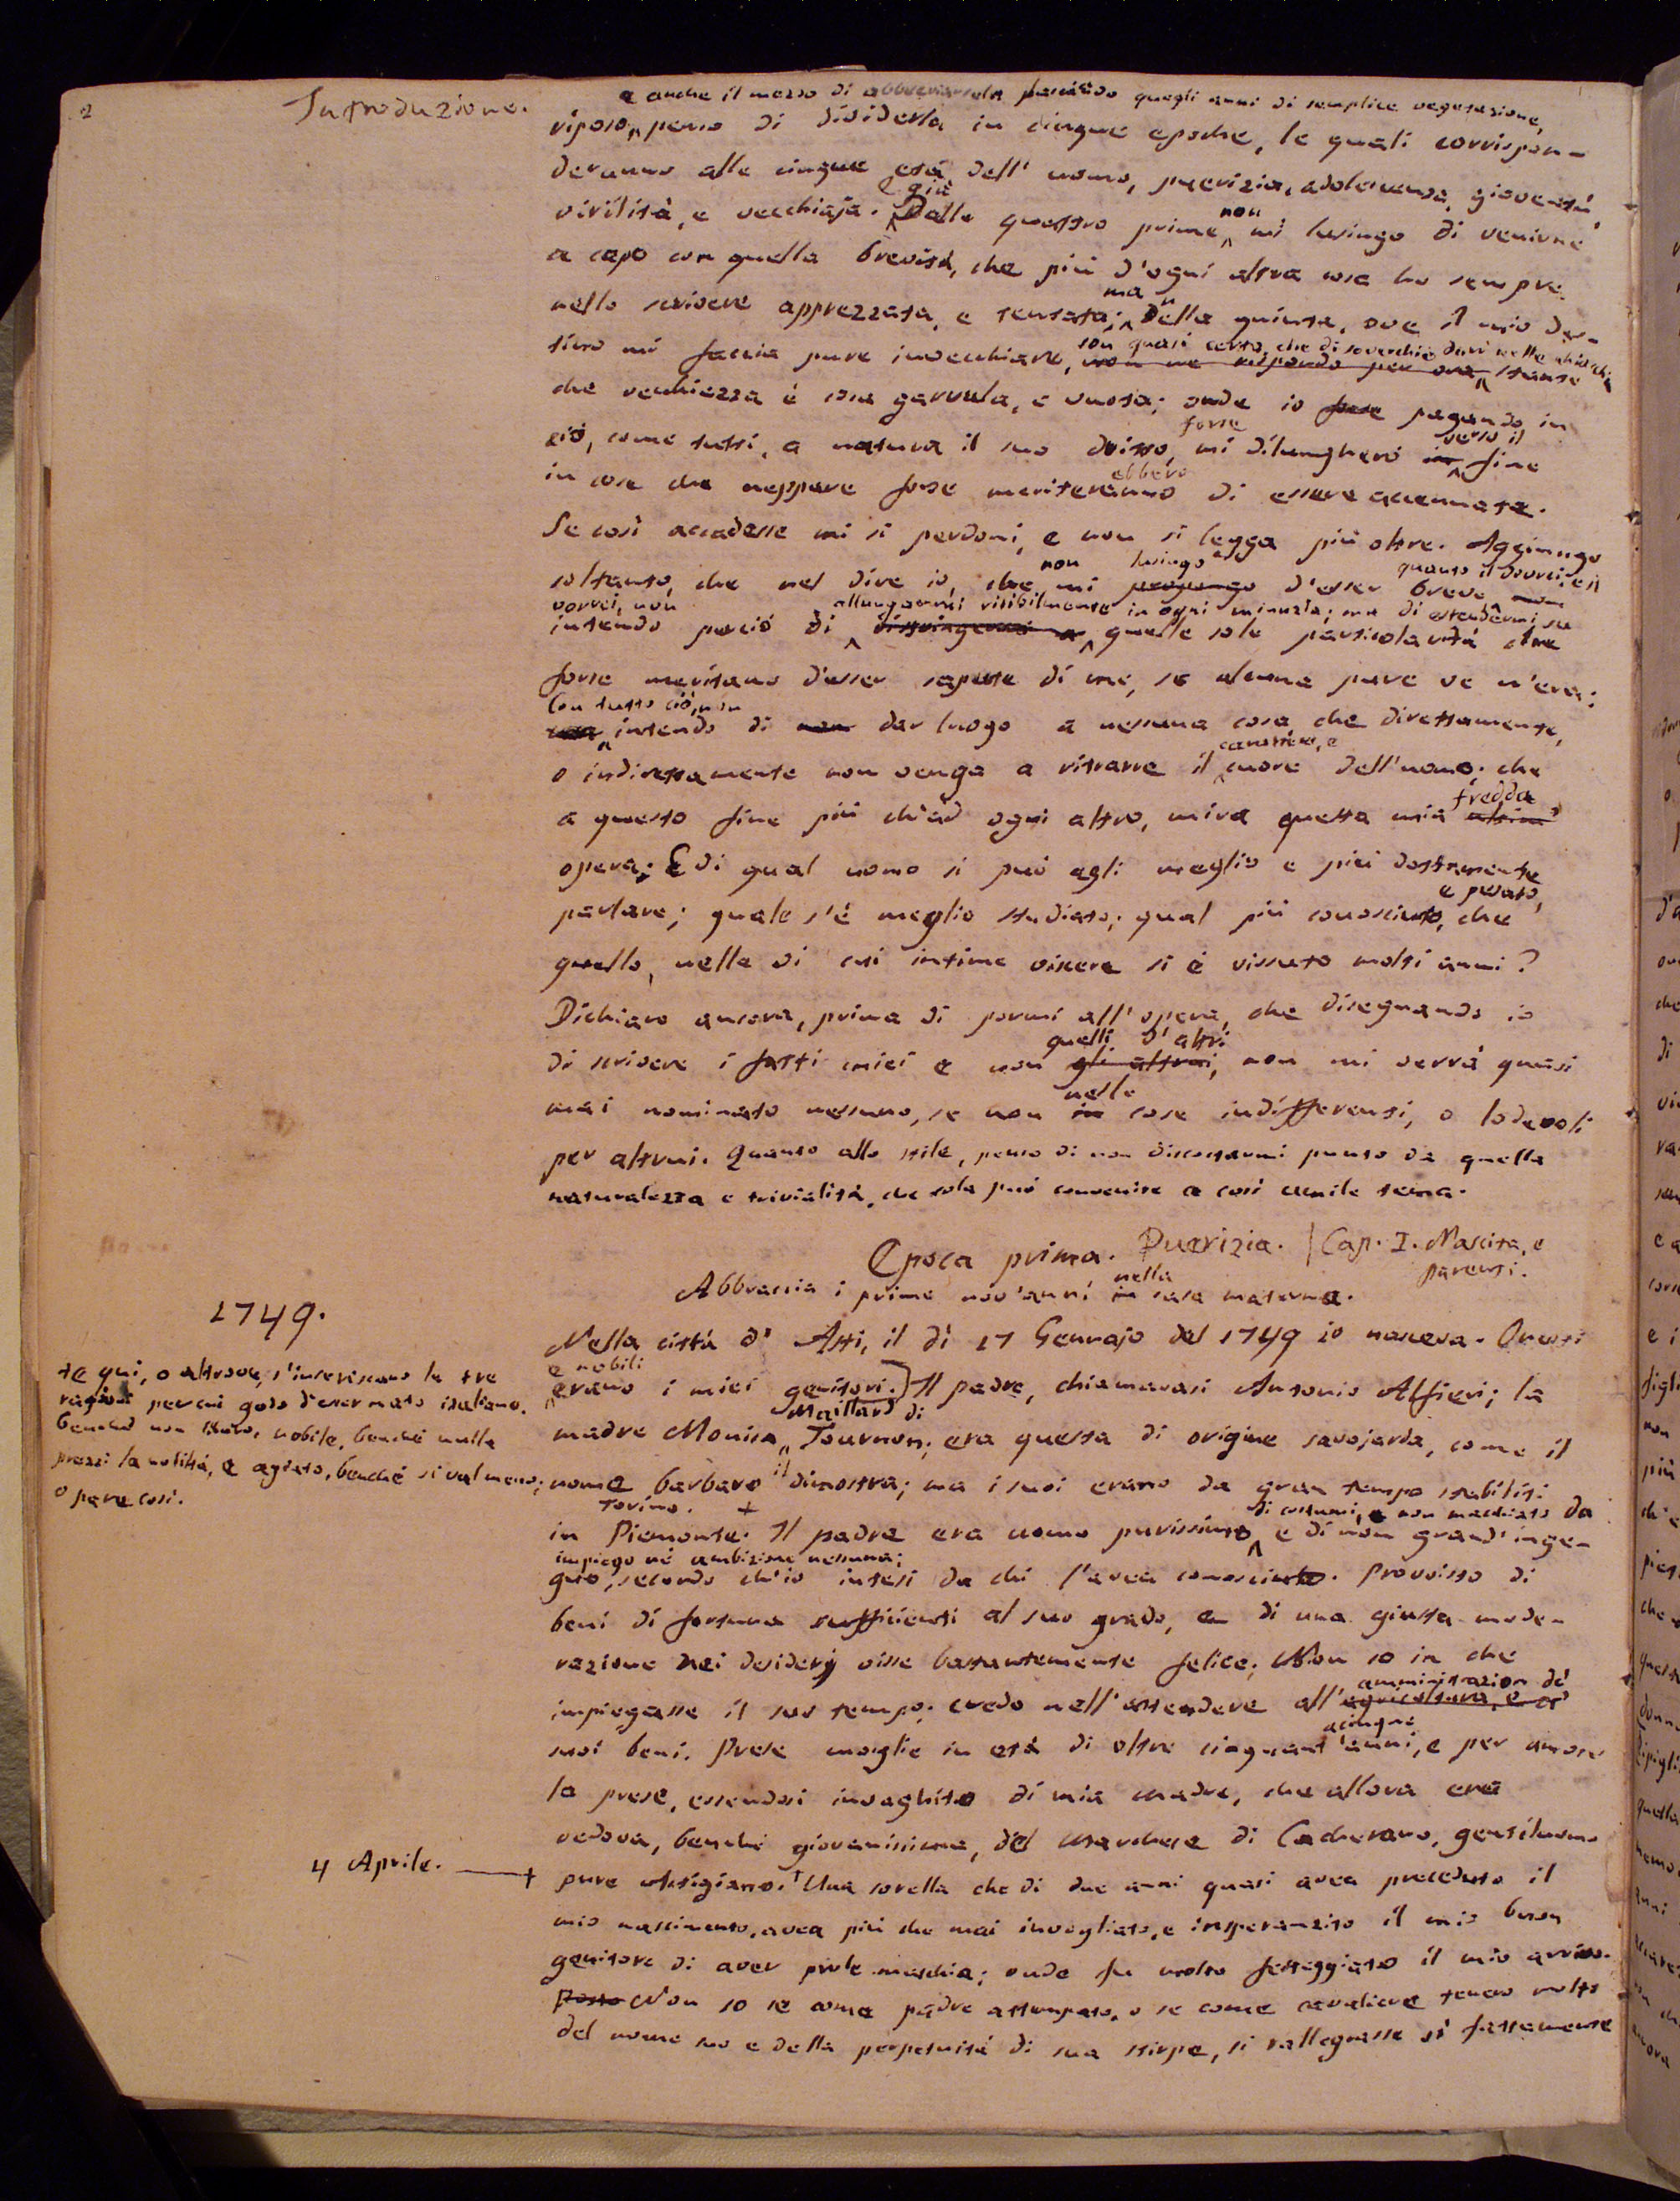 2
Introduzione.
e anche il mezzo di abbreviarsela lasciando quegli anni di semplice vegetazione,
riposo, penso di dividerla in cinque epoche, le quali corrispon-
deranno alle cinque età dell' uomo, puerizia, adolescenza, gioventù,
E già non
virilità, e vecchiaja. Dalle quattro prime mi lusingo di venirne
a capo con quella brevità, che più d'ogni altra cosa ho sempre
ma n
nello scrivere apprezzata, e tentata; Della quinta, ove il mio des-
son quasi certo, che di soverchio darò nelle chiacchiere
tino mi faccia pure invecchiare, non ne rispondo per ora, stante
che vecchiezza è cosa garrula, e vuota; onde io forse pagando in
forse verso il
ciò, come tutti, a natura il suo dritto, mi dilungherò in fine
ebbero
in cose che neppure forse meriteranno di essere accennate.
Se così accadesse mi si perdoni, e non si legga più oltre. Aggiungo
non lusingo quanto il dovrei, e il
soltanto, che nel dire io, che mi propongo d'esser breve non
vorrei, non allungarmi risibilmente in ogni minuzia; ma di estendermi su
intendo perciò di ristringermi a quelle sole particolarità che
forse meritano d'esser sapute di me, se alcuna pure ve n'era;
Con tutto ciò, non
ma intendo di non dar luogo a nessuna cosa che direttamente,
carattere, e
o indirettamente non venga a ritrarre il cuore dell'uomo; che
fredda
a questo fine più ch'ad ogni altro, mira questa mia
opera; E di qual uomo si può egli meglio e più dottamente
e pesato,
parlare; quale s'è meglio studiato; qual più conosciuto, che
quello, nelle di cui intime viscere si è vissuto molti anni?
Dichiaro ancora, prima di pormi all'opera, che disegnando io
quelli d'altri
di scrivere i fatti miei e non gli altrui, non mi verrà quasi
nelle
mai nominato nessuno, se non in cose indifferenti, o lodevoli
per altrui. Quanto allo stile, penso di non discostarmi punto da quella
naturalezza e trivialità, che sola può convenire a così umile tema.
Epoca prima. Puerizia. | Cap. I. Nascita, e
parenti.
nella
Abbraccia i primi nov'anni in casa materna.
1749.
Nella città d' Asti, il dì 17 Gennajo del 1749 io nasceva. Onesti
e nobili
erano i miei genitori.] Il padre, chiamavasi Antonio Alfieri; la
Maillard di
madre Monica, Tournon; era questa di origine savojarda, come il
nome barbaro il dimostra; ma i suoi erano da gran tempo stabiliti
Torino. + di costumi, e non macchiato da
in Piemonte. Il padre era uomo purissimo, e di non grand' inge-
impiego né ambizione nessuna;
gno, secondo ch'io intesi da chi l'avea conosciuto. Provvisto di
beni di fortuna sufficienti al suo grado, e di una giusta mode-
razione nei desiderj visse bastantemente felice; Non so in che
amministrazion de'
impiegasse il suo tempo; credo nell'attendere all'agricoltura, e a'
acinque
suoi beni. Prese moglie in età di oltre cinquant'anni, e per amore
la prese, essendosi invaghito di mia madre, che allora era
vedova, benché giovanissima, del Marchese di Cacherano, gentiluomo
pure Astigiano. † Una sorella che di due anni quasi avea preceduto il
mio nascimento, avea più che mai invogliato, e insperanzito il mio buon
genitore di aver prole maschia; onde fu molto festeggiato il mio arrivo.
Non so se come padre attempato, o se come cavaliere tenero molto
del nome suo e della perpetuità di sua stirpe, si rallegrasse sì fattamente
+ E qui, o altrove, s'inseriscano le tre
ragioni per cui godo d'esser nato italiano,
benché non libero, nobile, benché nulla
prezzi la nobiltà, e agiato, benché si val meno;
o pare così.
4 Aprile. —— +